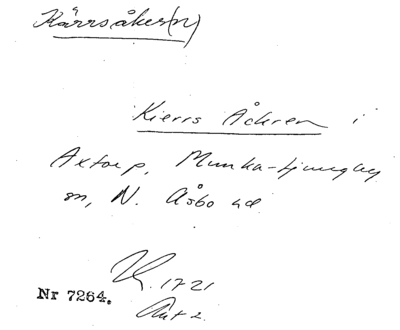 Kärrsåker(n)
Kierrs Åckren i
Axtorp, Munka-Ljungby
sn, N. Åsbo hd.
1721
Nr 7264.
Akt 2.